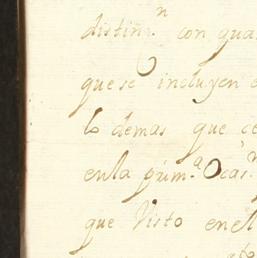 distinⁿ con qua
que se incluyen e
lo demas que ce
en la prim.ᵃ Ocas.ⁿ
que Visto en el